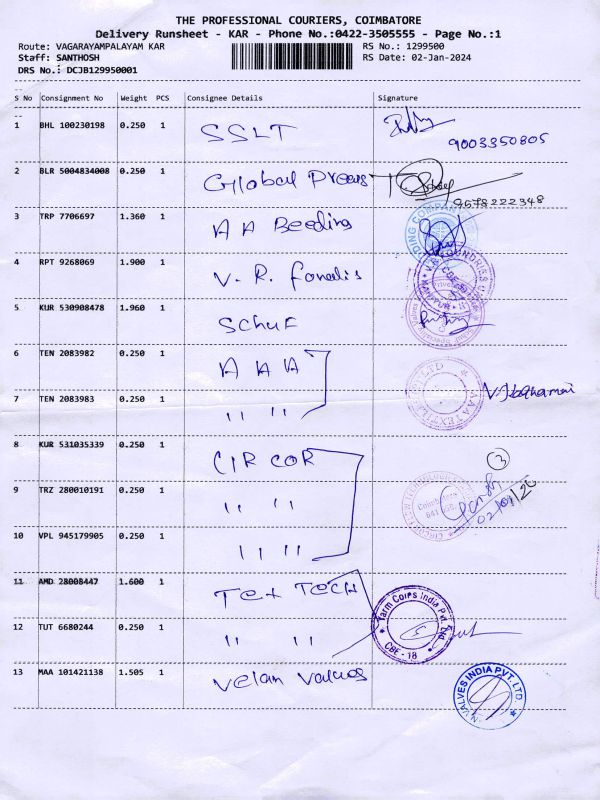 THE PROFESSIONAL COURIERS, COIMBATORE
Delivery Runsheet - KAR - Phone No.:0422-3505555 - Page No.:1
Route: VAGARAYAMPALAYAM KAR RS No.: 1299500
Staff: SANTHOSH RS Date: 02-Jan-2024
DRS No.: DCJB129950001
S No Consignment No Weight PCS Consignee Details Signature
1 BHL 100230198 0.250 1 SSLT
9003350805
2 BLR 5004834008 0.250 1 Global Press
9578222348
3 TRP 7706697 1.360 1 A A Beeding
4 RPT 9268069 1.900 1 V. R.
5 KUR 530908478 1.960 1 SCHUF
6 TEN 2083982 0.250 1 A A A
7 TEN 2083983 0.250 1 " "
8 KUR 531035339 0.250 1 CIRCOR
3
9 TRZ 280010191 0.250 1 " "
10 VPL 945179905 0.250 1 " "
11 AMD 28008447 1.600 1 TEX TECH
12 TUT 6680244 0.250 1 " "
Yarm Corps India Pvt. Ltd.
CBE - 18
13 MAA 101421138 1.505 1 Velan Valves
VALVES INDIA PVT. LTD.